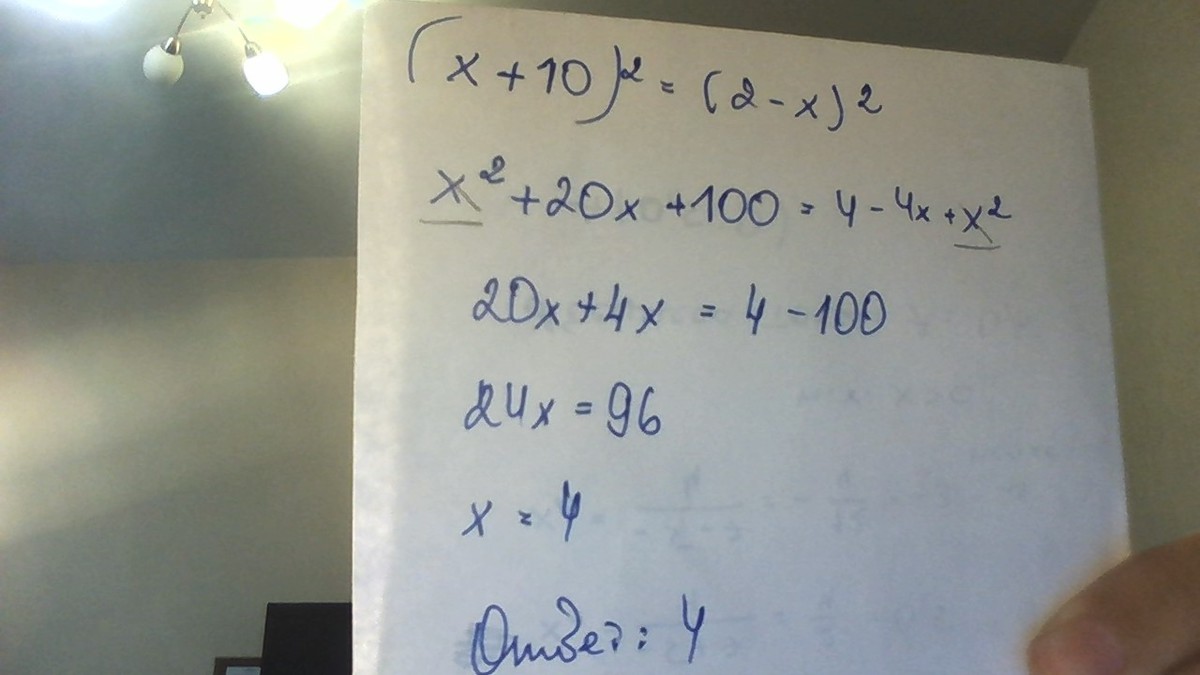 (x+10)² = (2-x)²
x²+20x+100 = 4-4x+x²
20x+4x = 4-100
24x=96
x = 4
Ответ: 4